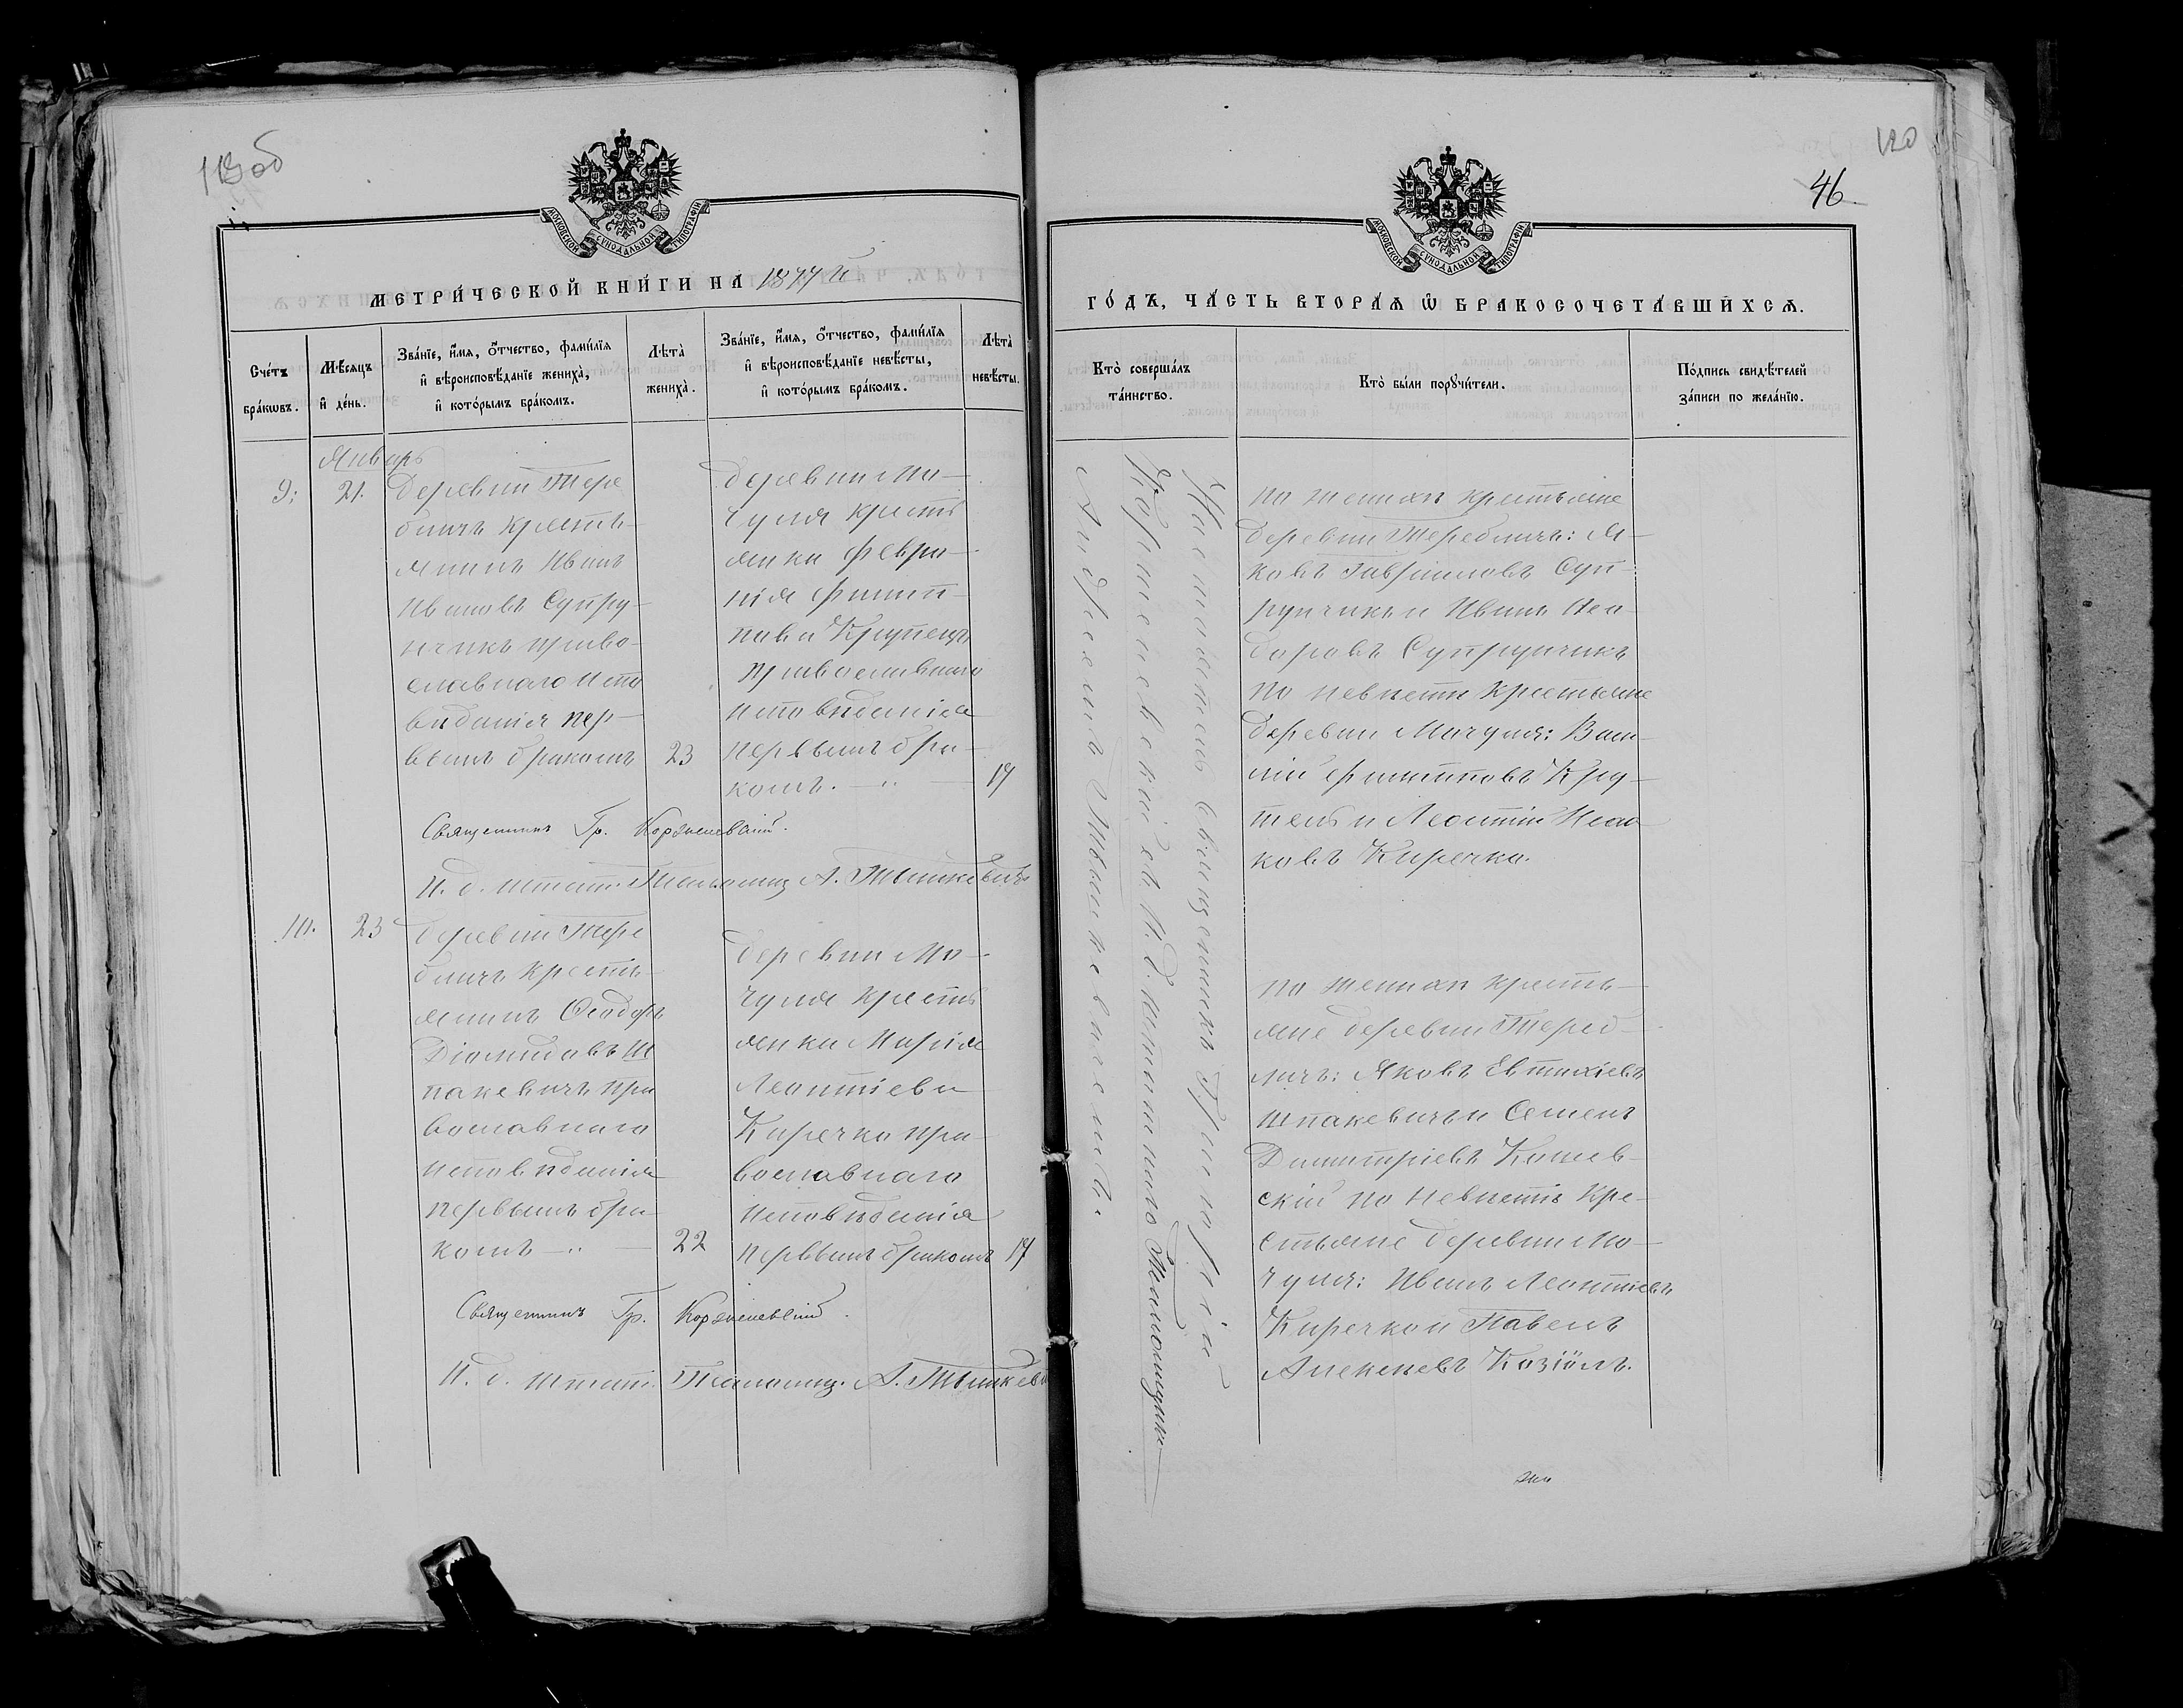 119 об
МОСКОВСКОЙ СѴНОДАЛЬНОЙ ТИПОГРАФІИ
МЕТРИ́ЧЕСКОЙ КНИ́ГИ НА 1877 й
Сче́тъ бра́кѡвъ.
Мѣ́сяцъ и де́нь.
Зва́нїе, и́мя, ѻ҆́тчество, фами́лїя
и вѣроисповѣ́данїе жениха̀,
и кото́рымъ бра́комъ.
Лѣта̀ жениха̀.
Зва́нїе, и́мя, ѻ҆́тчество, фами́лїя
и вѣроисповѣ́данїе невѣ́сты,
и кото́рымъ бра́комъ.
Лѣта̀ невѣ́сты.
Январь
9; 21.
Деревни Тере
бличъ кресть-
янинъ Иванъ
Ивановъ Супру-
нчикъ право-
славнаго испо
вѣданія пер-
вымъ бракомъ 23
деревни Мо-
чуля кресть
янка Февро-
нія Филип-
пова Крутень
православнаго
исповѣданія
первымъ бра-
комъ. 17
Священникъ Гр. Корженевскій.
И. д. штат. Псаломщ А. Тышкевичъ
10. 23
деревни Тере
бличъ кресть-
янинъ Ѳеодоръ
Діомидовъ Ш
пакевичъ пра
вославнаго
исповѣданія
первымъ бра-
комъ 22
деревни Мо-
чуля кресть
янка Марія
Леонтіева
Киречко пра-
вославнаго
исповѣданія
первымъ бракомъ 17
Священникъ Гр. Корженевскій.
И. д. штат. Псаломщ. А. Тышкев
120
46
МОСКОВСКОЙ СѴНОДАЛЬНОЙ ТИПОГРАФІИ
ГО́ДЪ, ЧА́СТЬ ВТОРА́Я Ѡ҆ БРАКОСОЧЕТА́ВШИХСЯ.
Кто̀ соверша́лъ
та́инство.
Кто̀ бы́ли порꙋчи́тели.
По́дпись свидѣ́телей
за́писи по жела́нїю.
Настоятель священникъ Григорій
Корженевскій съ И. д. штатнаго Псаломщика
Андреемъ Тышкевичемъ.
по женихѣ крестьяне
деревни Теребличъ: Я-
ковъ Гавріиловъ Суп-
рунчикъ и Иванъ Ѳео-
доровъ Супрунчикъ
по невѣстѣ крестьяне
деревни Мочуля: Васи-
лій Филипповъ Кру-
тень и Леонтій Исаа
ковъ Киречко.
по женихѣ кресть-
яне деревни Тереб-
личъ: Яковъ Евтихіевъ
Шпакевичъ и Семенъ
Димитріевъ Кошев-
скій по невѣстѣ кре-
стьяне деревни Мо-
чуля: Иванъ Леонтіевъ
Киречко и Павелъ
Алексѣевъ Козіолъ.